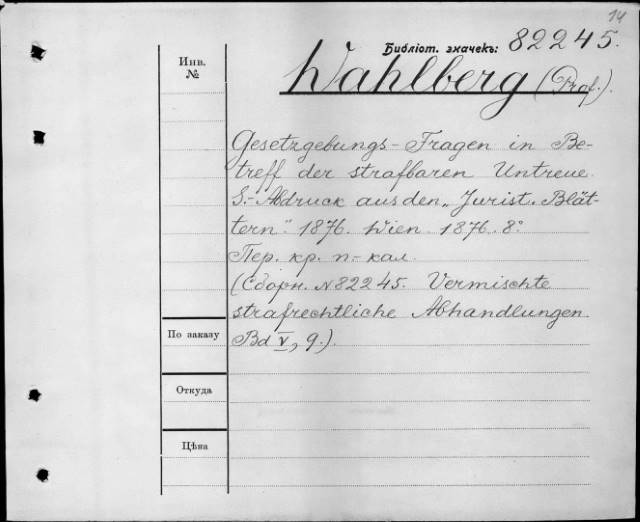 14
Библіот. значекъ: 82245.
Инв.
№
Wahlberg (Prof.).
Gesetzgebungs-Fragen in Be-
treff der strafbaren Untreue.
S.-Abdruck aus den „Jurist. Blät-
tern". 1876. Wien. 1876. 8°
Пер. кр. п.-кал.
(Сборн. №82245. Vermischte
strafrechtliche Abhandlungen.
Bd V, 9.).
По заказу
Откуда
Цѣна